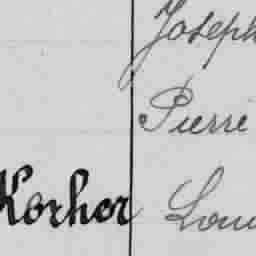 Joseph
Pierre
Korhor Lou